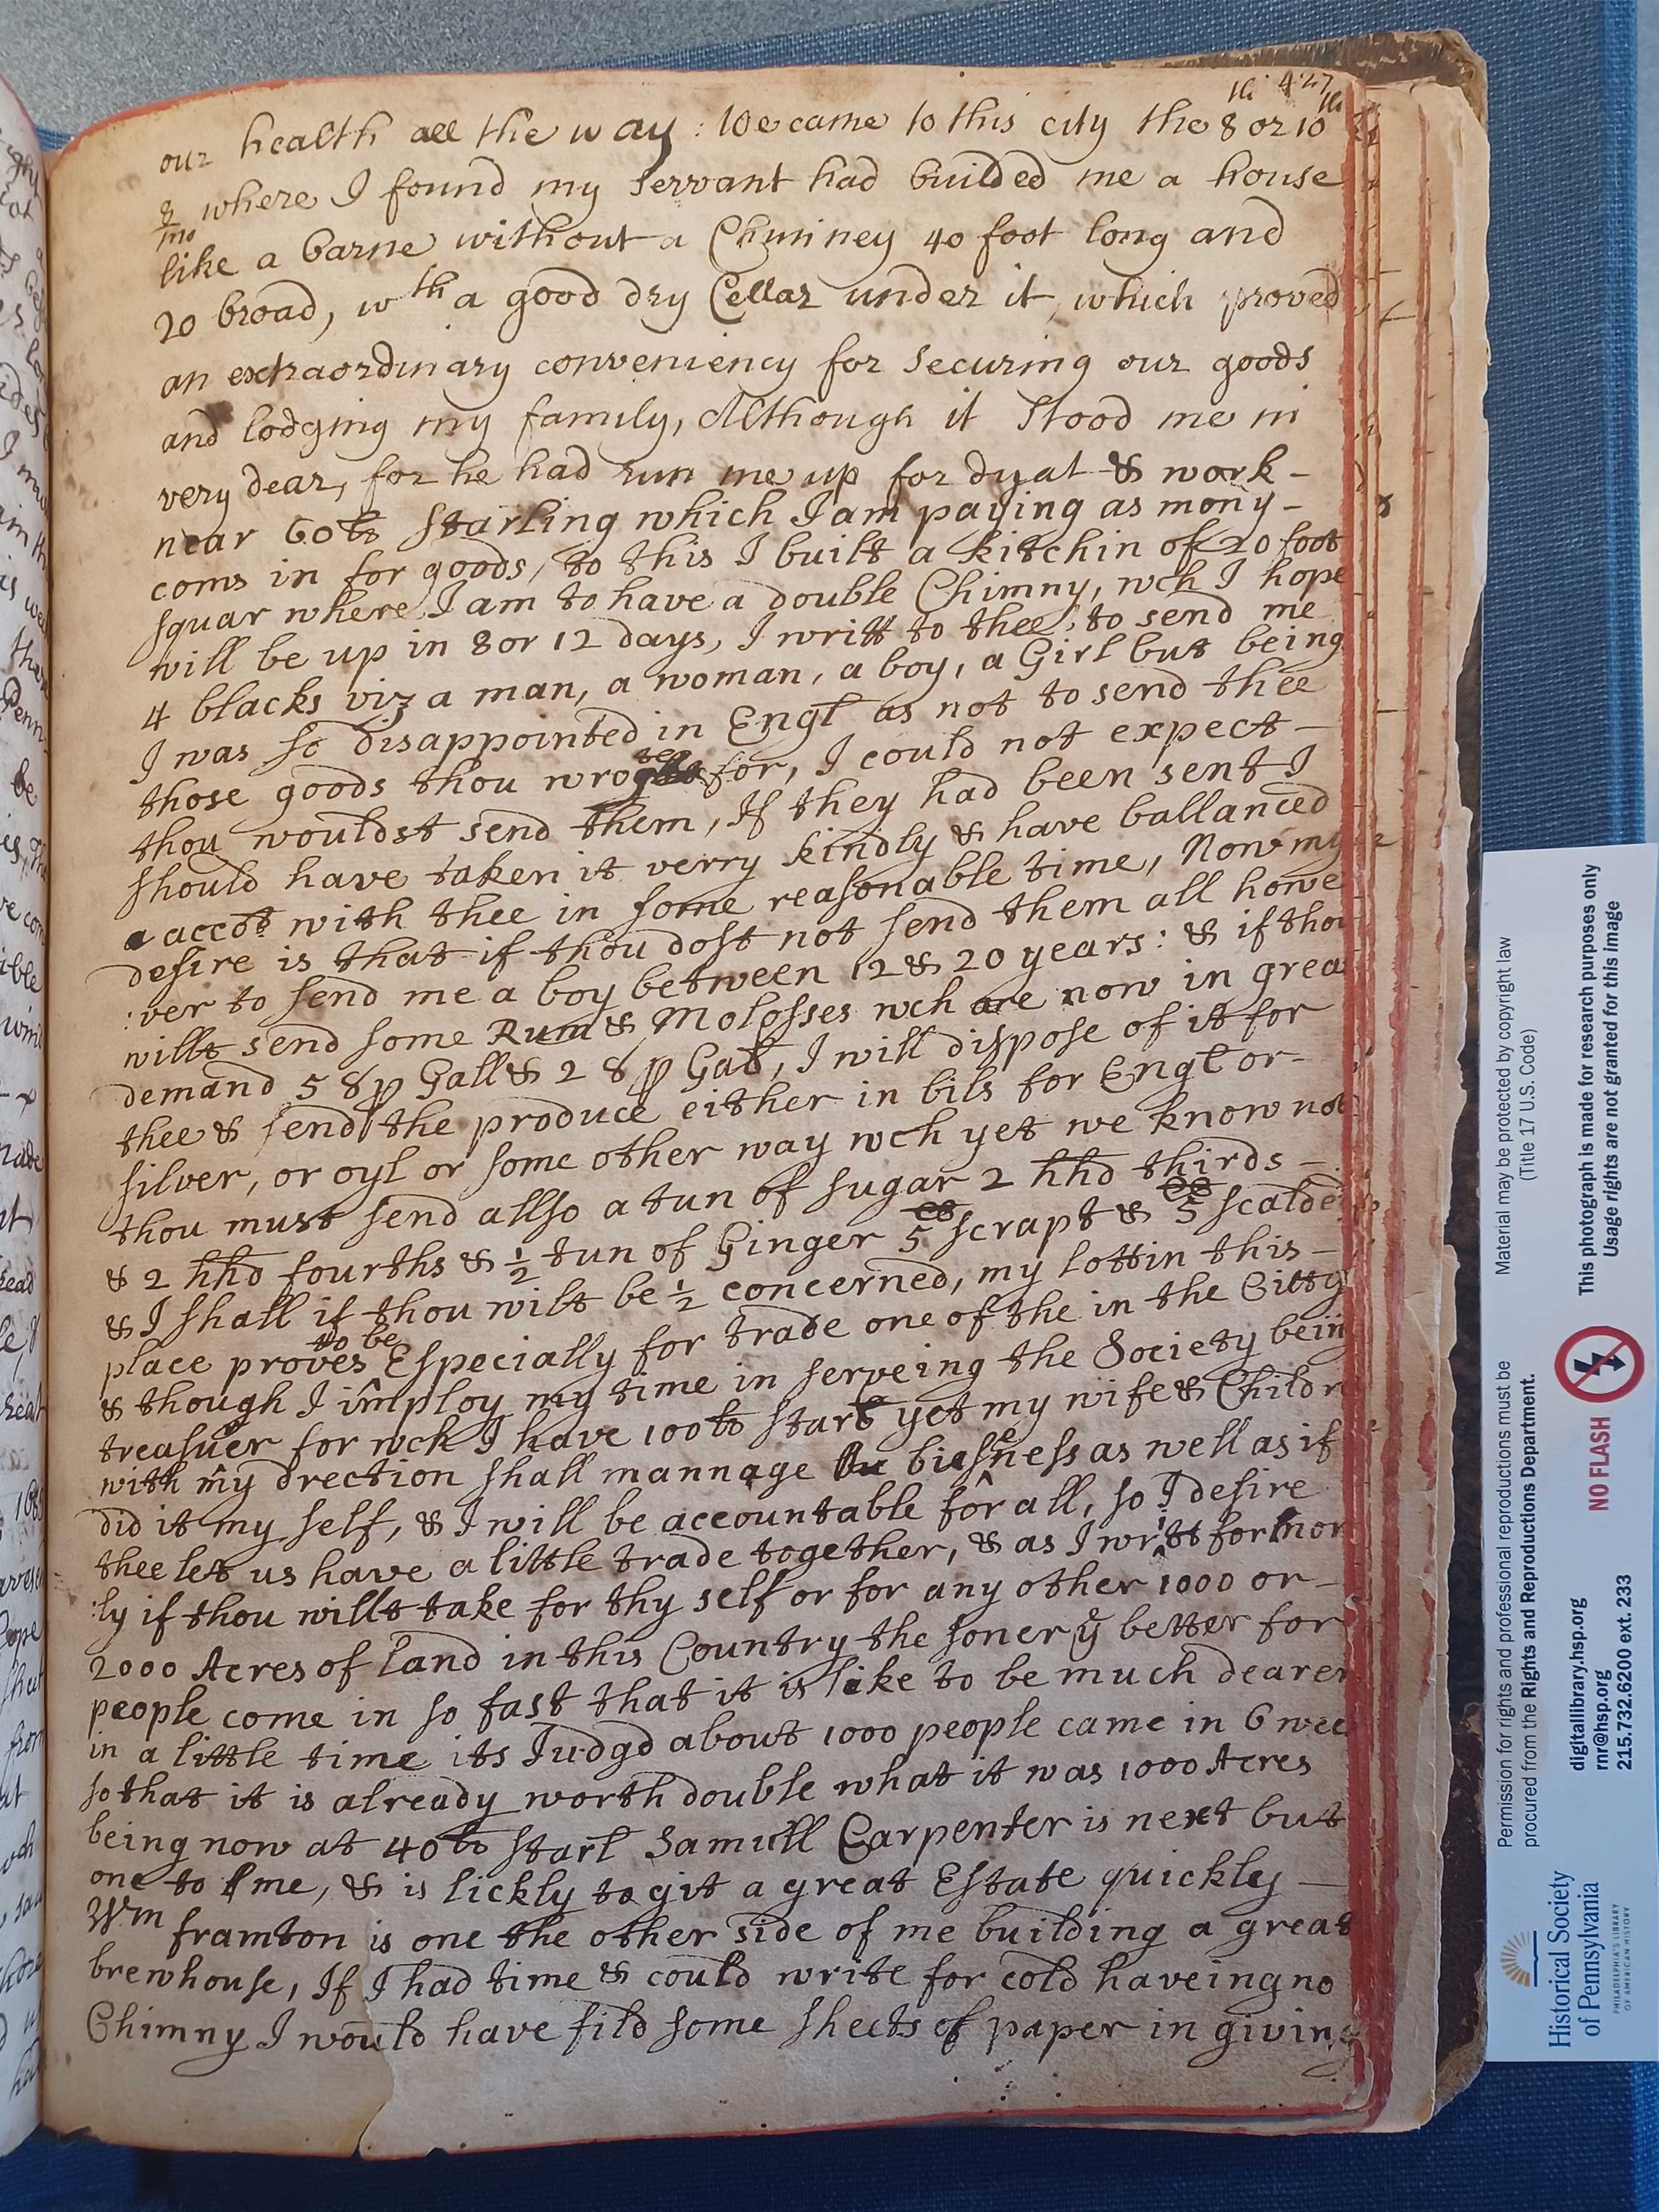 427
our health all the way : We came to this city the 8th or 10th
8/mo where I found my servant had builded me a house
like a barne without a Chimney 40 foot long and
20 broad, wth a good dry Cellar under it, which proved
an extraordinary conveniency for securing our goods
and lodging my family, Although it stood me in
very dear, for he had run me up for dyat & work-
near 60lb starling which I am paying as mony-
coms in for goods, to this I built a kitchin of 20 foot
squar where I am to have a double Chimny, wch I hope
will be up in 8 or 12 days, I writt to thee to send me
4 blacks viz a man, a woman, a boy, a Girl but being
I was so disappointed in Engl as not to send thee
those goods thou wrote for, I could not expect-
thou wouldst send them, If they had been sent I
should have taken it verry kindly & have ballanced
accot with thee in some reasonable time, Now my
desire is that if thou dost not send them all howe
:ver to send me a boy between 12 & 20 years: & if thou
willt send some Rum & Molosses wch are now in grea
demand 5 8 p Gall & 2 8 p Gal, I will dispose of it for
thee & send the produce either in bils for Engl or-
silver, or oyl or some other way wch yet we know not
thou must send allso a tun of sugar 2 hhd thirds-
& 2 hhd fourths & ½ tun of Ginger 5 scrapt & 5 scalde
& I shall if thou wilt be ½ concerned, my lott in this-
place proves to be Especially for trade one of the in the Citty
& though I imploy my time in serveing the Society bein
treasuer for wch I have 100lb starl yet my wife & Childre
with my drection shall mannage biesness as well as if
did it my self, & I will be accountable for all, so I desire
thee let us have a little trade together, & as I writt for mor
:ly if thou willt take for thy self or for any other 1000 or-
2000 Acres of land in this Country the soner ye better for
people come in so fast that it is like to be much dearer
in a little time its Judgd about 1000 people came in 6 wee
so that it is already worth double what it was 1000 Acres
being now at 40lb starl Samull Carpenter is next but
one to me, & is lickly to git a great Estate quickly-
Wm framton is one the other side of me building a great
brewhouse, If I had time & could write for cold haveing no
Chimny I would have fild some sheets of paper in giving
Historical Society
of Pennsylvania
PHILADELPHIA'S LIBRARY
OF AMERICAN HISTORY
Permission for rights and professional reproductions must be
procured from the Rights and Reproductions Department.
digitallibrary.hsp.org
rnr@hsp.org
215.732.6200 ext. 233
NO FLASH
Material may be protected by copyright law
(Title 17 U.S. Code)
This photograph is made for research purposes only
Usage rights are not granted for this image